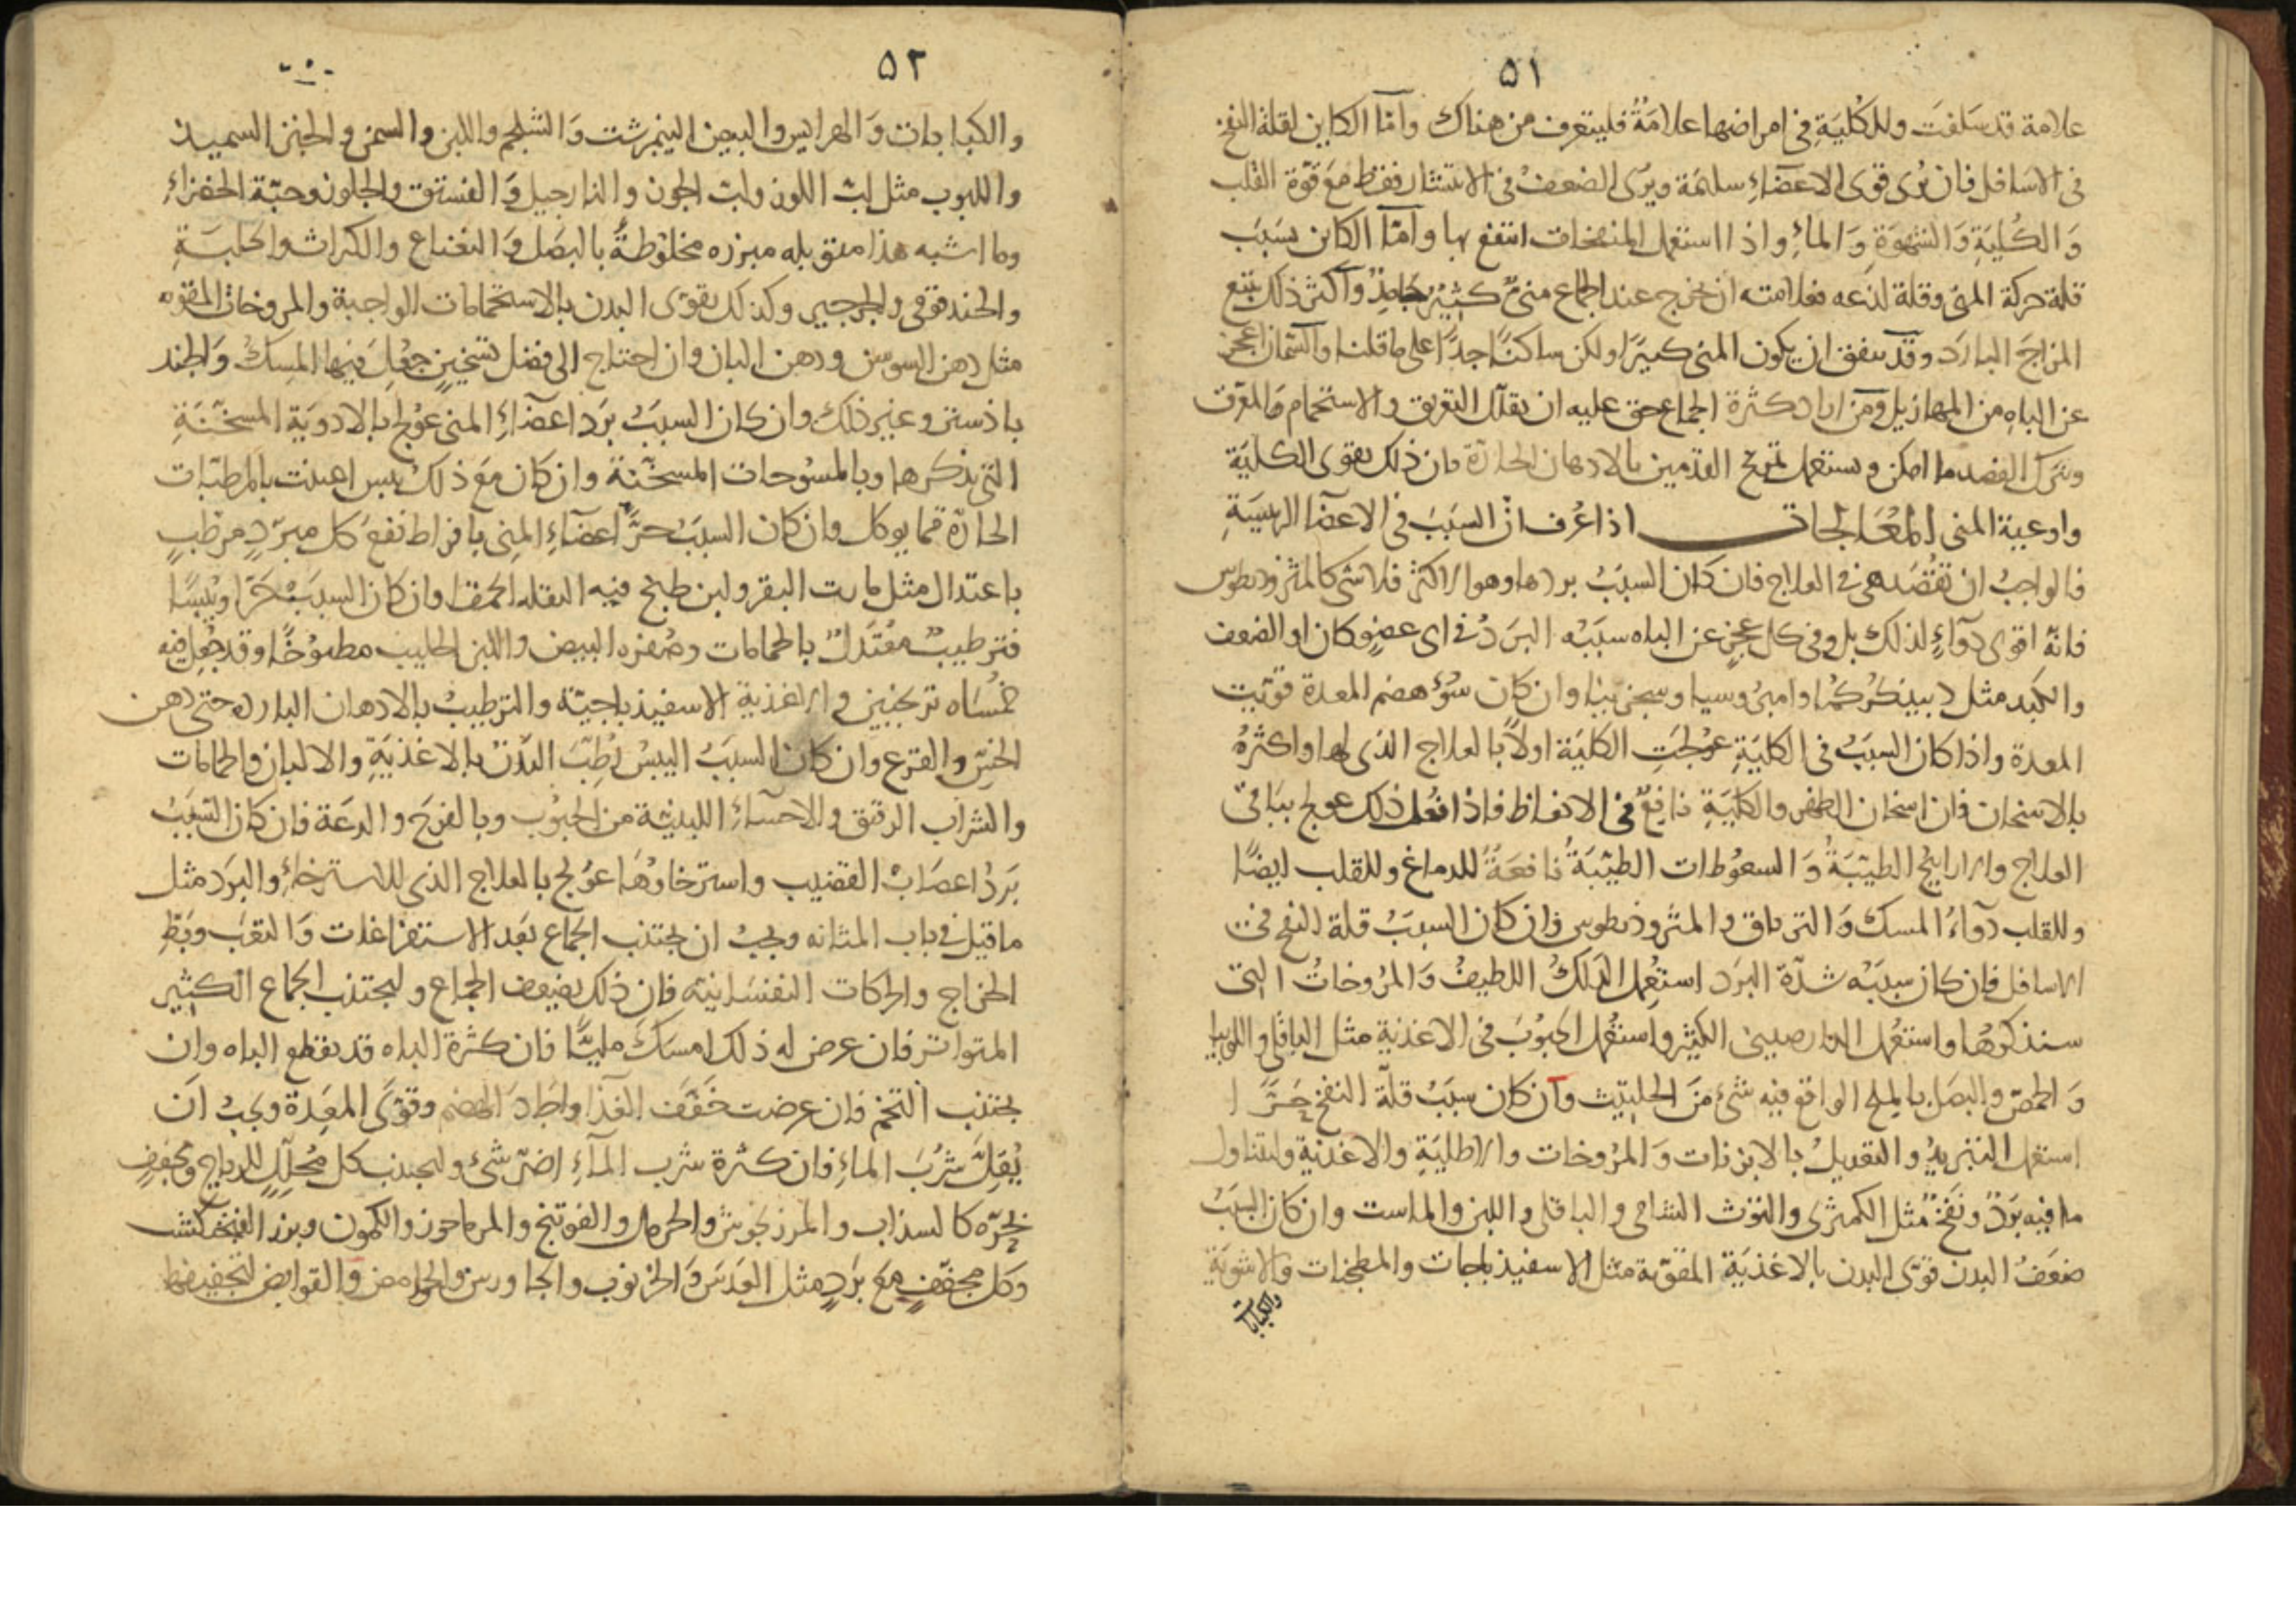 ٥١
علامة قد سَلفتَ وللكُليَةِ في امراضها علامَةٌ فليتعرف من هناك وامّا الكاين لقلة النفخ
في الاسافل فان يُرى قوى الاعضَاءِ سليمَة ويرى الضعفُ في الانتشار فقط مَعَ قوّة القلب
وَالكُليَةِ وَالشهوَةِ وَالماءِ واذا استعمل المنفخات انتفع بها وامّا الكاين بسَبَب
قلة حركة المنى وقلة لذعه فعلامته ان يخرج عند الجماع منىٌّ كثيرٌ جَامِدٌ واكثر ذلك يتبع
المزاجَ البارَد وقد يتفق ان يكون المنى كبيرًا ولكن ساكنًا جدًا على ما قلنا والسّمان اعجز
عن الباهِ من المهازيل ومَن اراد كثرة الجماع حق عليه ان يقلّل التعريق والاستحمام وَالمعرّق
ويترك الفصد ما امكن ويستعمل تمريخ القدمين بالادهان الحارّة فان ذلك يقوى الكليَة
واوعية المنى المُعَالجات اذا عُرف انّ السبَبَ في الاعضا الرئيسَيةِ
فالواجبُ ان تقصُدَ هى في العلاج فان كان السبَبُ بردها وهو الاكثر فلا شى كالمثروديطوس
فانه اقوى دوآءٍ لذلك بل وفي كل عجزٍ عن الباه سبَبُه البَردُ في اى عضوٍ كان او الضعف
والكبد مثل دبيذ كركُمُا وامبروسيا وسجزنيا وان كان سُؤ هضم المعدة قويت
المعدة واذا كان السبَبُ في الكليَةِ عُولجَتِ الكليَة اولاً بالعلاج الذى لها واكثرهُ
بالاسخان فان اسخان الظهر والكليَةِ نافِعٌ في الانعاظ فاذا فعُل ذلك عولج بباقي
العلاج والاراييحُ الطيّبَةُ وَالسعوُطات الطيّبَةُ نافعَةٌ للدماغ وللقلب ايضًا
وللقلب دوآءُ المسك وَالترياق والمثروديطوس وان كان السبَبُ قلة النفخ في
الاسافل فان كان سبَبُه شدّة البرَد استُعمِل الدلكُ اللطيفُ وَالمرُوخاتُ التى
سنذكرُها واستعُمل الدارصينى الكثير واستعُمل الحبوُبَ في الاغذية مثل الباقلى واللوبيا
وَالحمّص والبصَل بالملح الواقع فيه شئ منَ الحلتيث وان كان سبَبُ قلّة النفخ حَرًّا
استعمل التبريدُ والتعديلُ بالابزنات وَالمرُوخات والاطليَةِ والاغذية وليتناول
ما فيه بَردٌ ونَفخٌ مثل الكمثرى والتوُث الشامى والباقلى واللبن والماست وان كان السبَبُ
ضعَفُ البدن قوّى البدن بالاغذيَة المقوّية مثل الاسفيذباجات والمطجنات والاشوَيَة
والكبابات
٥٢
والكبابات وَالهرايس والبيض النيمرشت وَالشلجم واللبن والسمن والخبز السميذ
واللبوب مثل لبّ اللوز ولب الجوز والنارجيل وَالفستق والجلوز وحبّة الخضراءِ
وما اشبه هذا متوبله مبزره مخلوُطةً بالبصَل وَالنعناع والكراث والحلبَةِ
والحندقوقى والجرجير وكذلك يقوّى البدن بالاستحمامات الواجبة والمروخات المقوّيه
مثل دهن السوسن ودهن البان وان احتاج الى فضل تسخينٍ جعُلَ فيها المِسكُ وَالجند
باذستر وغير ذلك وان كان السببُ بَرَد اعضآءِ المنى عوُلج بالادويَة المسخّنَةِ
التى نذكرها وبالمسُوحات المسخّنة وان كان مَعَ ذلك يبس اعينت بالمرطبّات
الحارّة مما يوكل وان كان السببُ حرَّ اعضآءِ المِنى بافراط نفعَ كل مبرّدٍ مرطّبٍ
باعتدال مثل ماست البقر ولبن طبخ فيه البقله الحمقا وان كان السبَبُ حَرًّا ويُبسًا
فترطيبٌ معُتَدلٌ بالحمامات وصُفره البيض واللبن الحليب مطبوُخًا وقد جُعِل فيه
خمُسَاه ترنجبين والاغذية الاسفيذباجيّة والترطيبُ بالادهان البارده حتى دهن
الخسّ والقرع وان كان السببُ اليبسُ رُطِبّ البَدَنُ بالاغذيَةِ والالبان والحمامات
والشراب الرقيق والاحسآءِ اللينة من الحبوُب وبالفرَح والدعَة فان كان السَبَبُ
بَردُ اعصَابُ القضيب واسترخاوهَا عوُلج بالعلاج الذى للاسترخاءِ والبرَد مثل
ما قيل في باب المثانه ويجبُ ان يجتنب الجماع بَعَد الاستفراغات وَالتعَب وبَطِّ
الخراج والحركات النفسَانيّه فان ذلك يضعف الجماع وليجتنب الجماع الكثير
المتواتر فان عرض له ذلك امسَكَ مليًّا فان كثرة الباه قد يقطع الباه وان
يجتنب التخم فان عرضت خَفّفَ الغذا واجَادَ الهضم وقوّى المعِدة ويجبُ ان
يُقِلَّ شرُبَ الماءِ فان كثرة شرُب المآءِ اضرّ شئ وليجتنب كل محُلِّلٍ للرياح مجُففٍ
بحَرّه كالسذاب والمرزنجوش والحرمل والفوتنج والمرماحوز والكمون وبزر الفنجنكشت
وكل مجففٍ معَ برَدٍ مثل العدَسَ وَالخرنوب والجاورس والحوامض والقوابض لتجفيفها